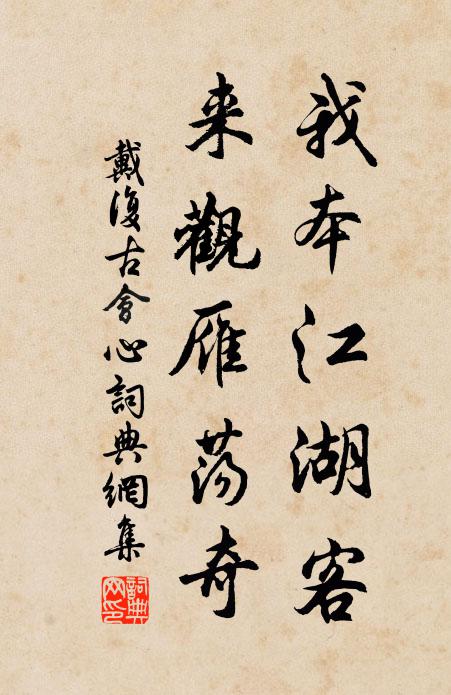 我本江湖客
来觀雁荡奇
戴復古會心詞典網集
詞典网印